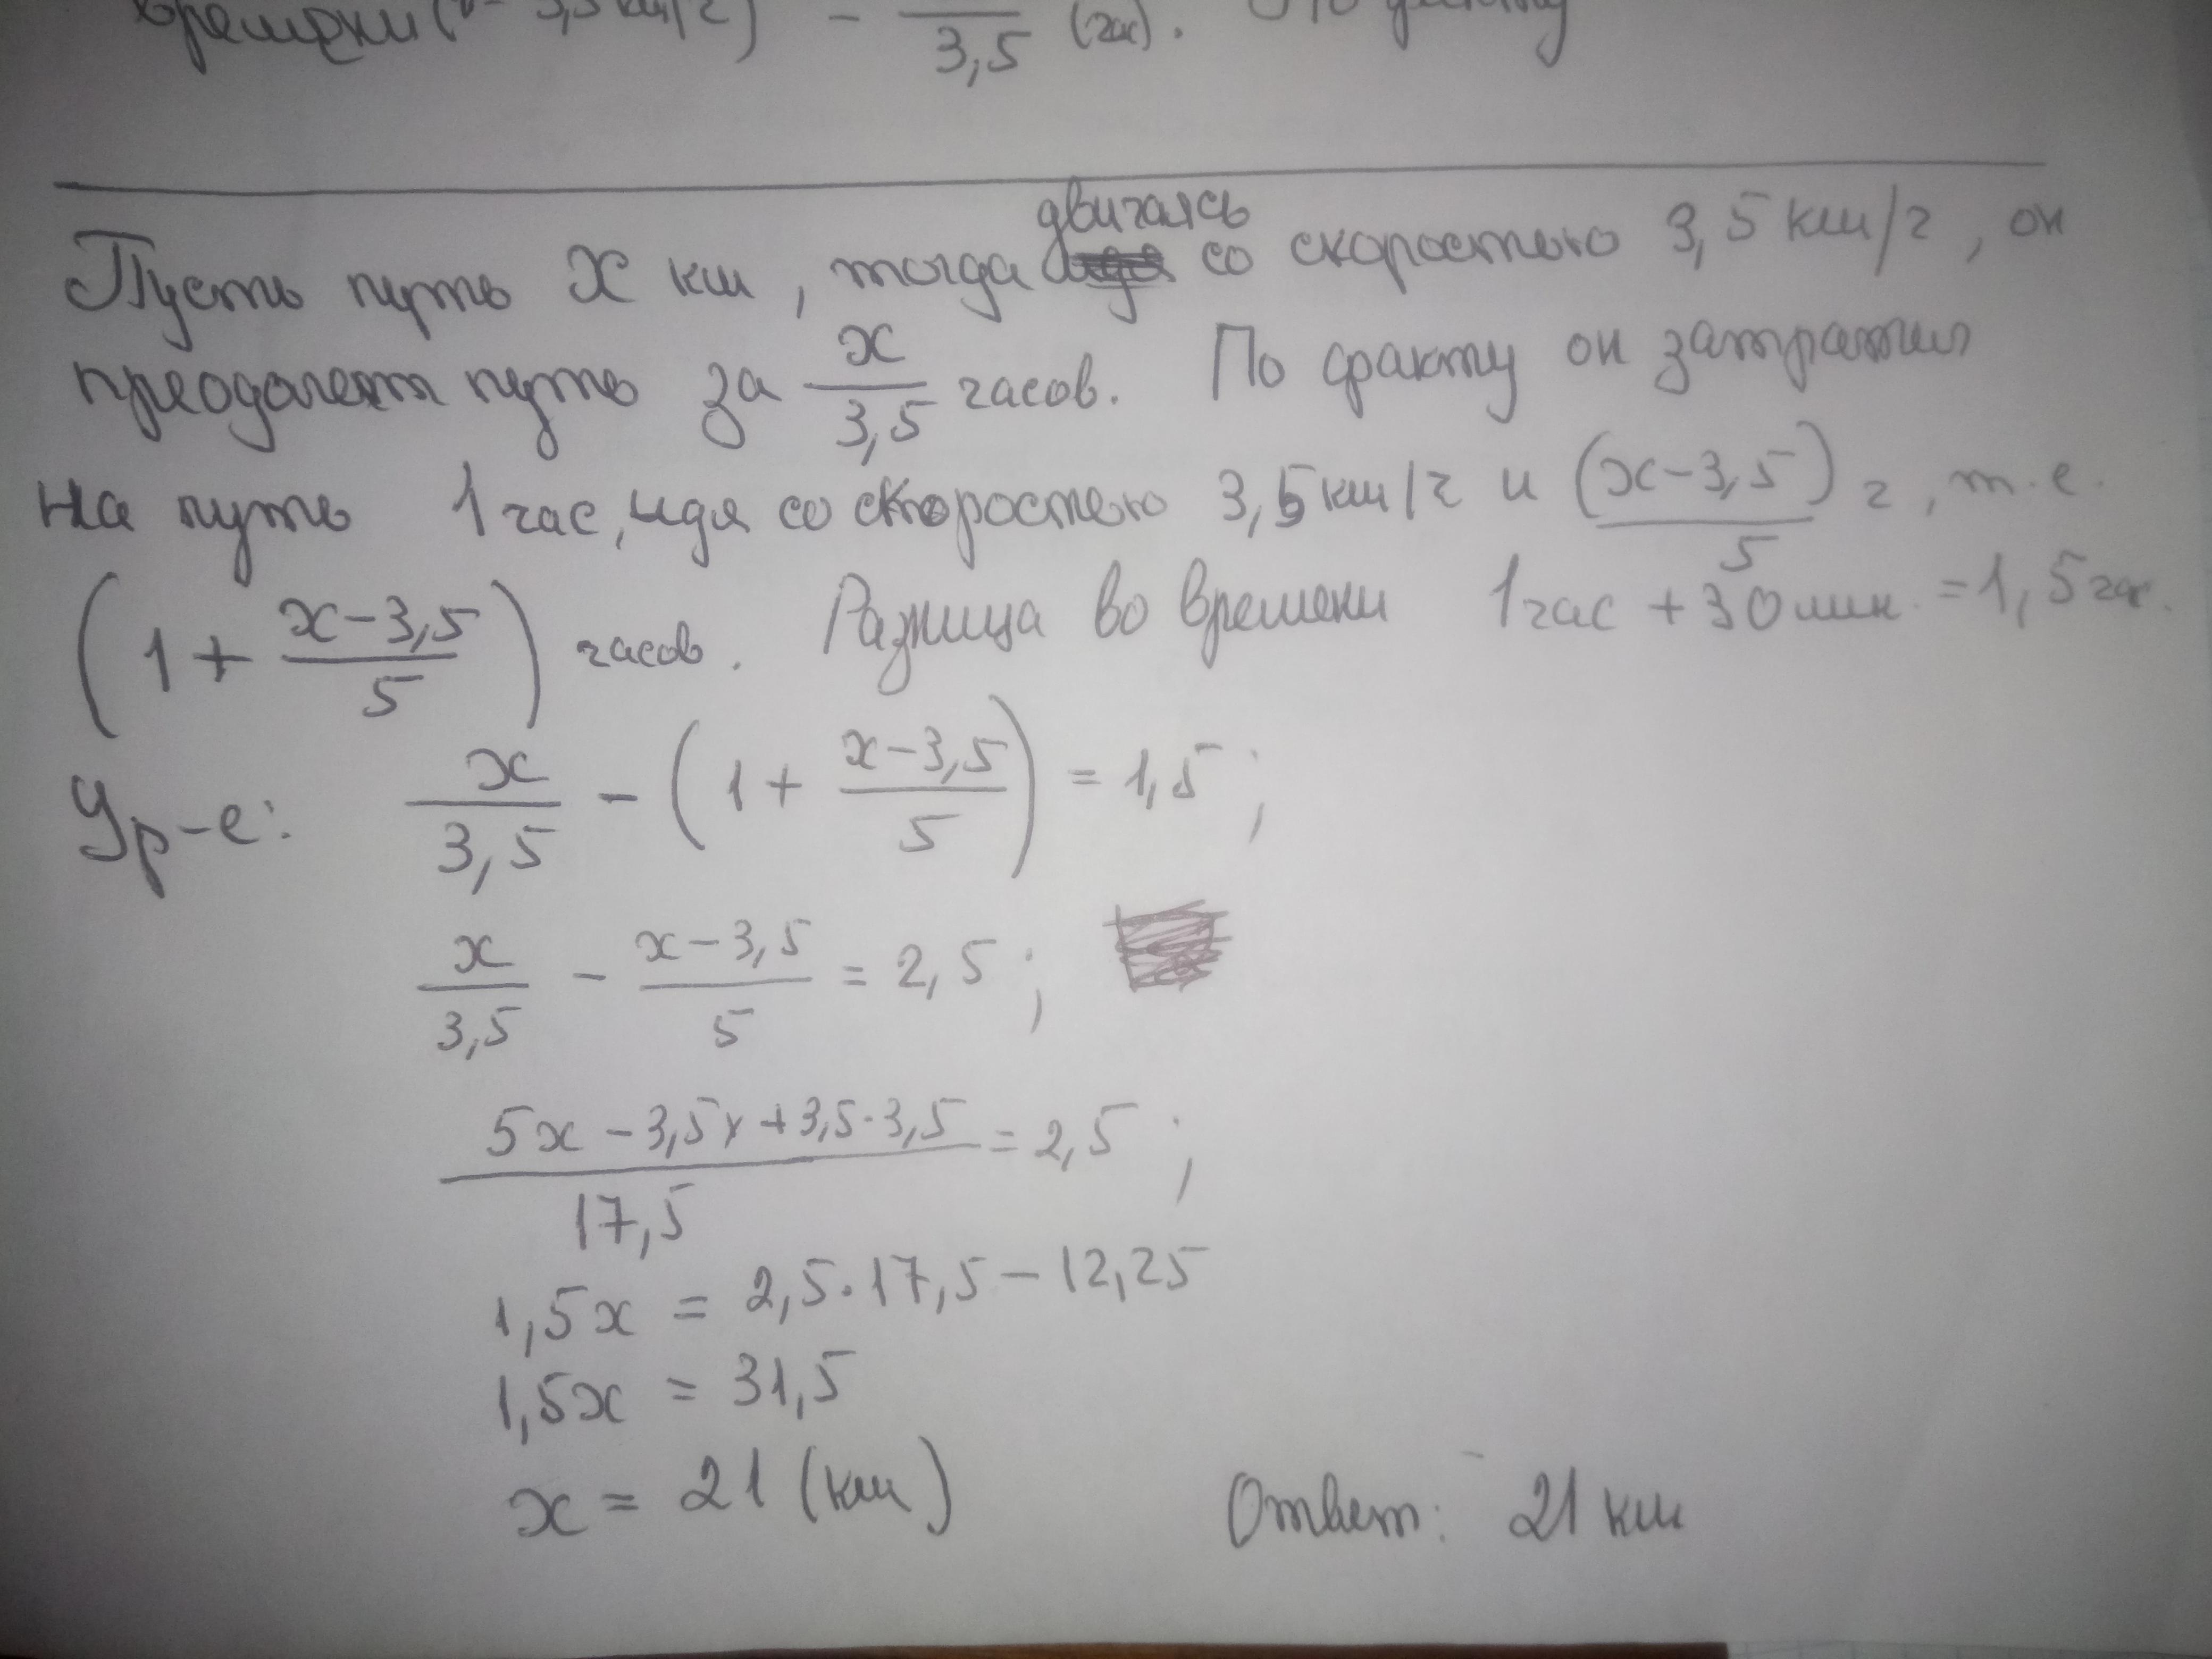 времени (v = 3,5 км/ч) - /3,5 (час). По факту
двигаясь
Пусть путь x км, тогда со скоростью 3,5 км/ч, он
преодолеет путь за x/3,5 часов. По факту он затратил
на путь 1 час, идя со скоростью 3,5 км/ч и (x-3,5)/5 ч, т.е.
(1 + x-3,5/5) часов. Разница во времени 1 час + 30 мин. = 1,5 час.
Ур-е: x/3,5 - (1 + x-3,5/5) = 1,5;
x/3,5 - x-3,5/5 = 2,5;
5x - 3,5x + 3,5·3,5/17,5 = 2,5;
1,5x = 2,5·17,5 - 12,25
1,5x = 31,5
x = 21 (км) Ответ: 21 км